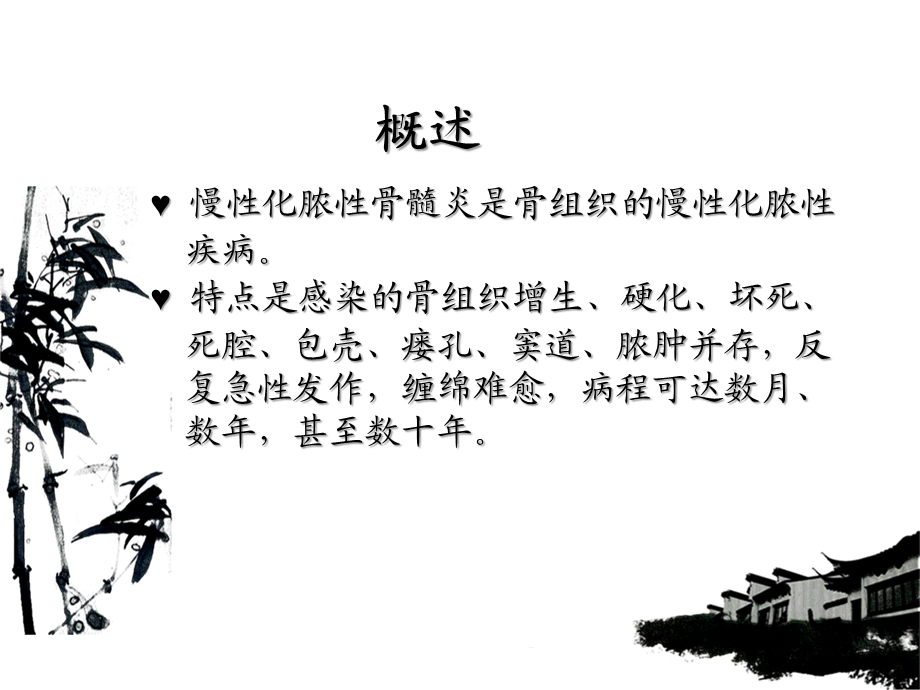 概述
♥ 慢性化脓性骨髓炎是骨组织的慢性化脓性
疾病。
♥ 特点是感染的骨组织增生、硬化、坏死、
死腔、包壳、瘘孔、窦道、脓肿并存，反
复急性发作，缠绵难愈，病程可达数月、
数年，甚至数十年。